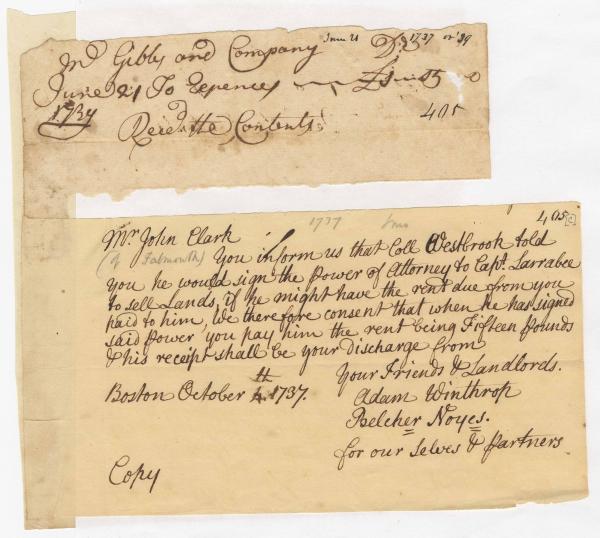 June 21 1737 or 39
Mr Gibbs and Company Dr
June 21 To Expences
1737
405
Reced the Contents
405
1737
Mr. John Clark
(of Falmouth) You inform us that Coll Westbrook told
you he would sign the Power of Attorney to Capt. Larrabee
to sell Lands, if he might have the rent due from you
paid to him, We therefore consent that when he has signed
said Power you pay him the rent being Fifteen Pounds
& his receipt shall be your Discharge from
Your Friends & Landlords.
Boston October 4th 1737.
Adam Winthrop
Belcher Noyes.
for our selves & partners
Copy